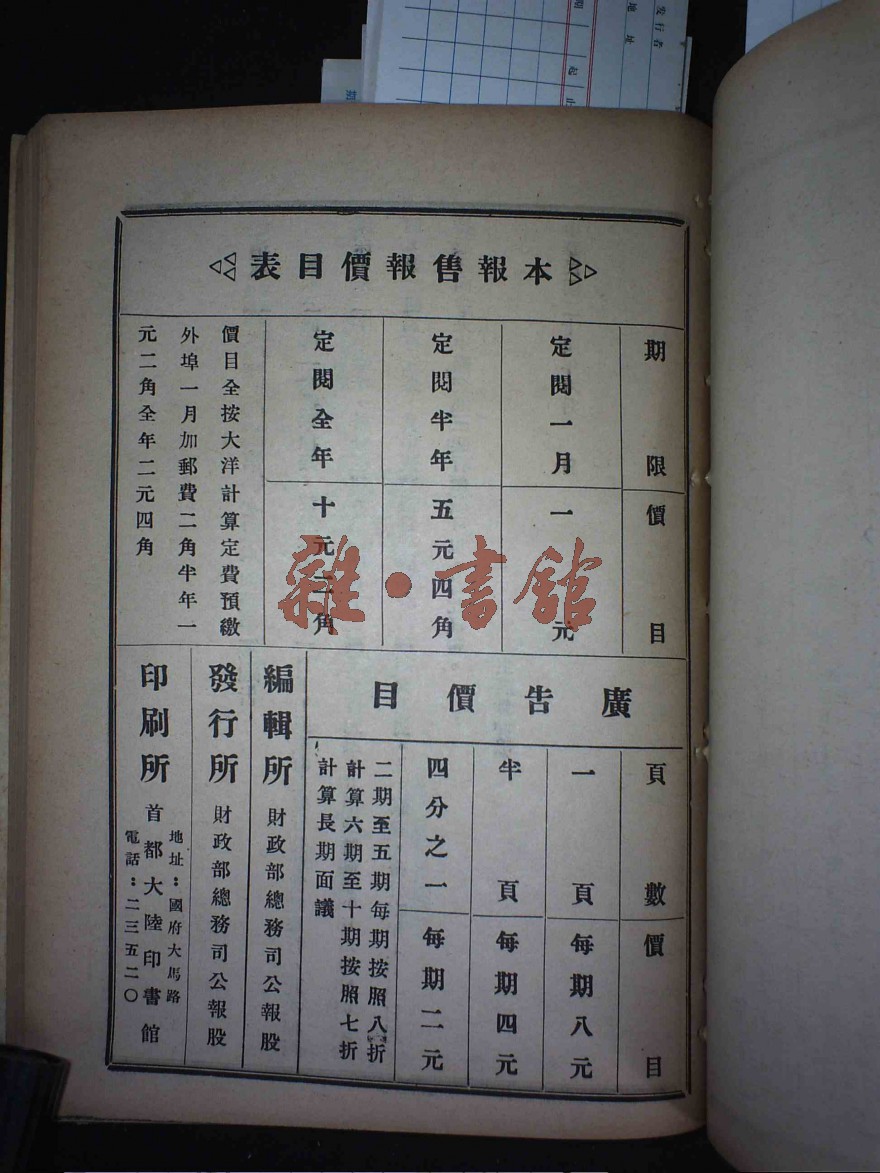 本報售報價目表
期限
定閱一月
定閱半年
定閱全年
價目
一元
五元四角
十元二角
價目全按大洋計算定費預繳
外埠一月加郵費二角半年一
元二角全年二元四角
廣告價目
頁數
一頁
半頁
四分之一
價目
每期八元
每期四元
每期二元
二期至五期每期按照八折
計算六期至十期按照七折
計算長期面議
編輯所 財政部總務司公報股
發行所 財政部總務司公報股
印刷所 首都大陸印書館
地址：國府大馬路
電話：二三五二〇
雜·書館
发行者
地址
期
起
止